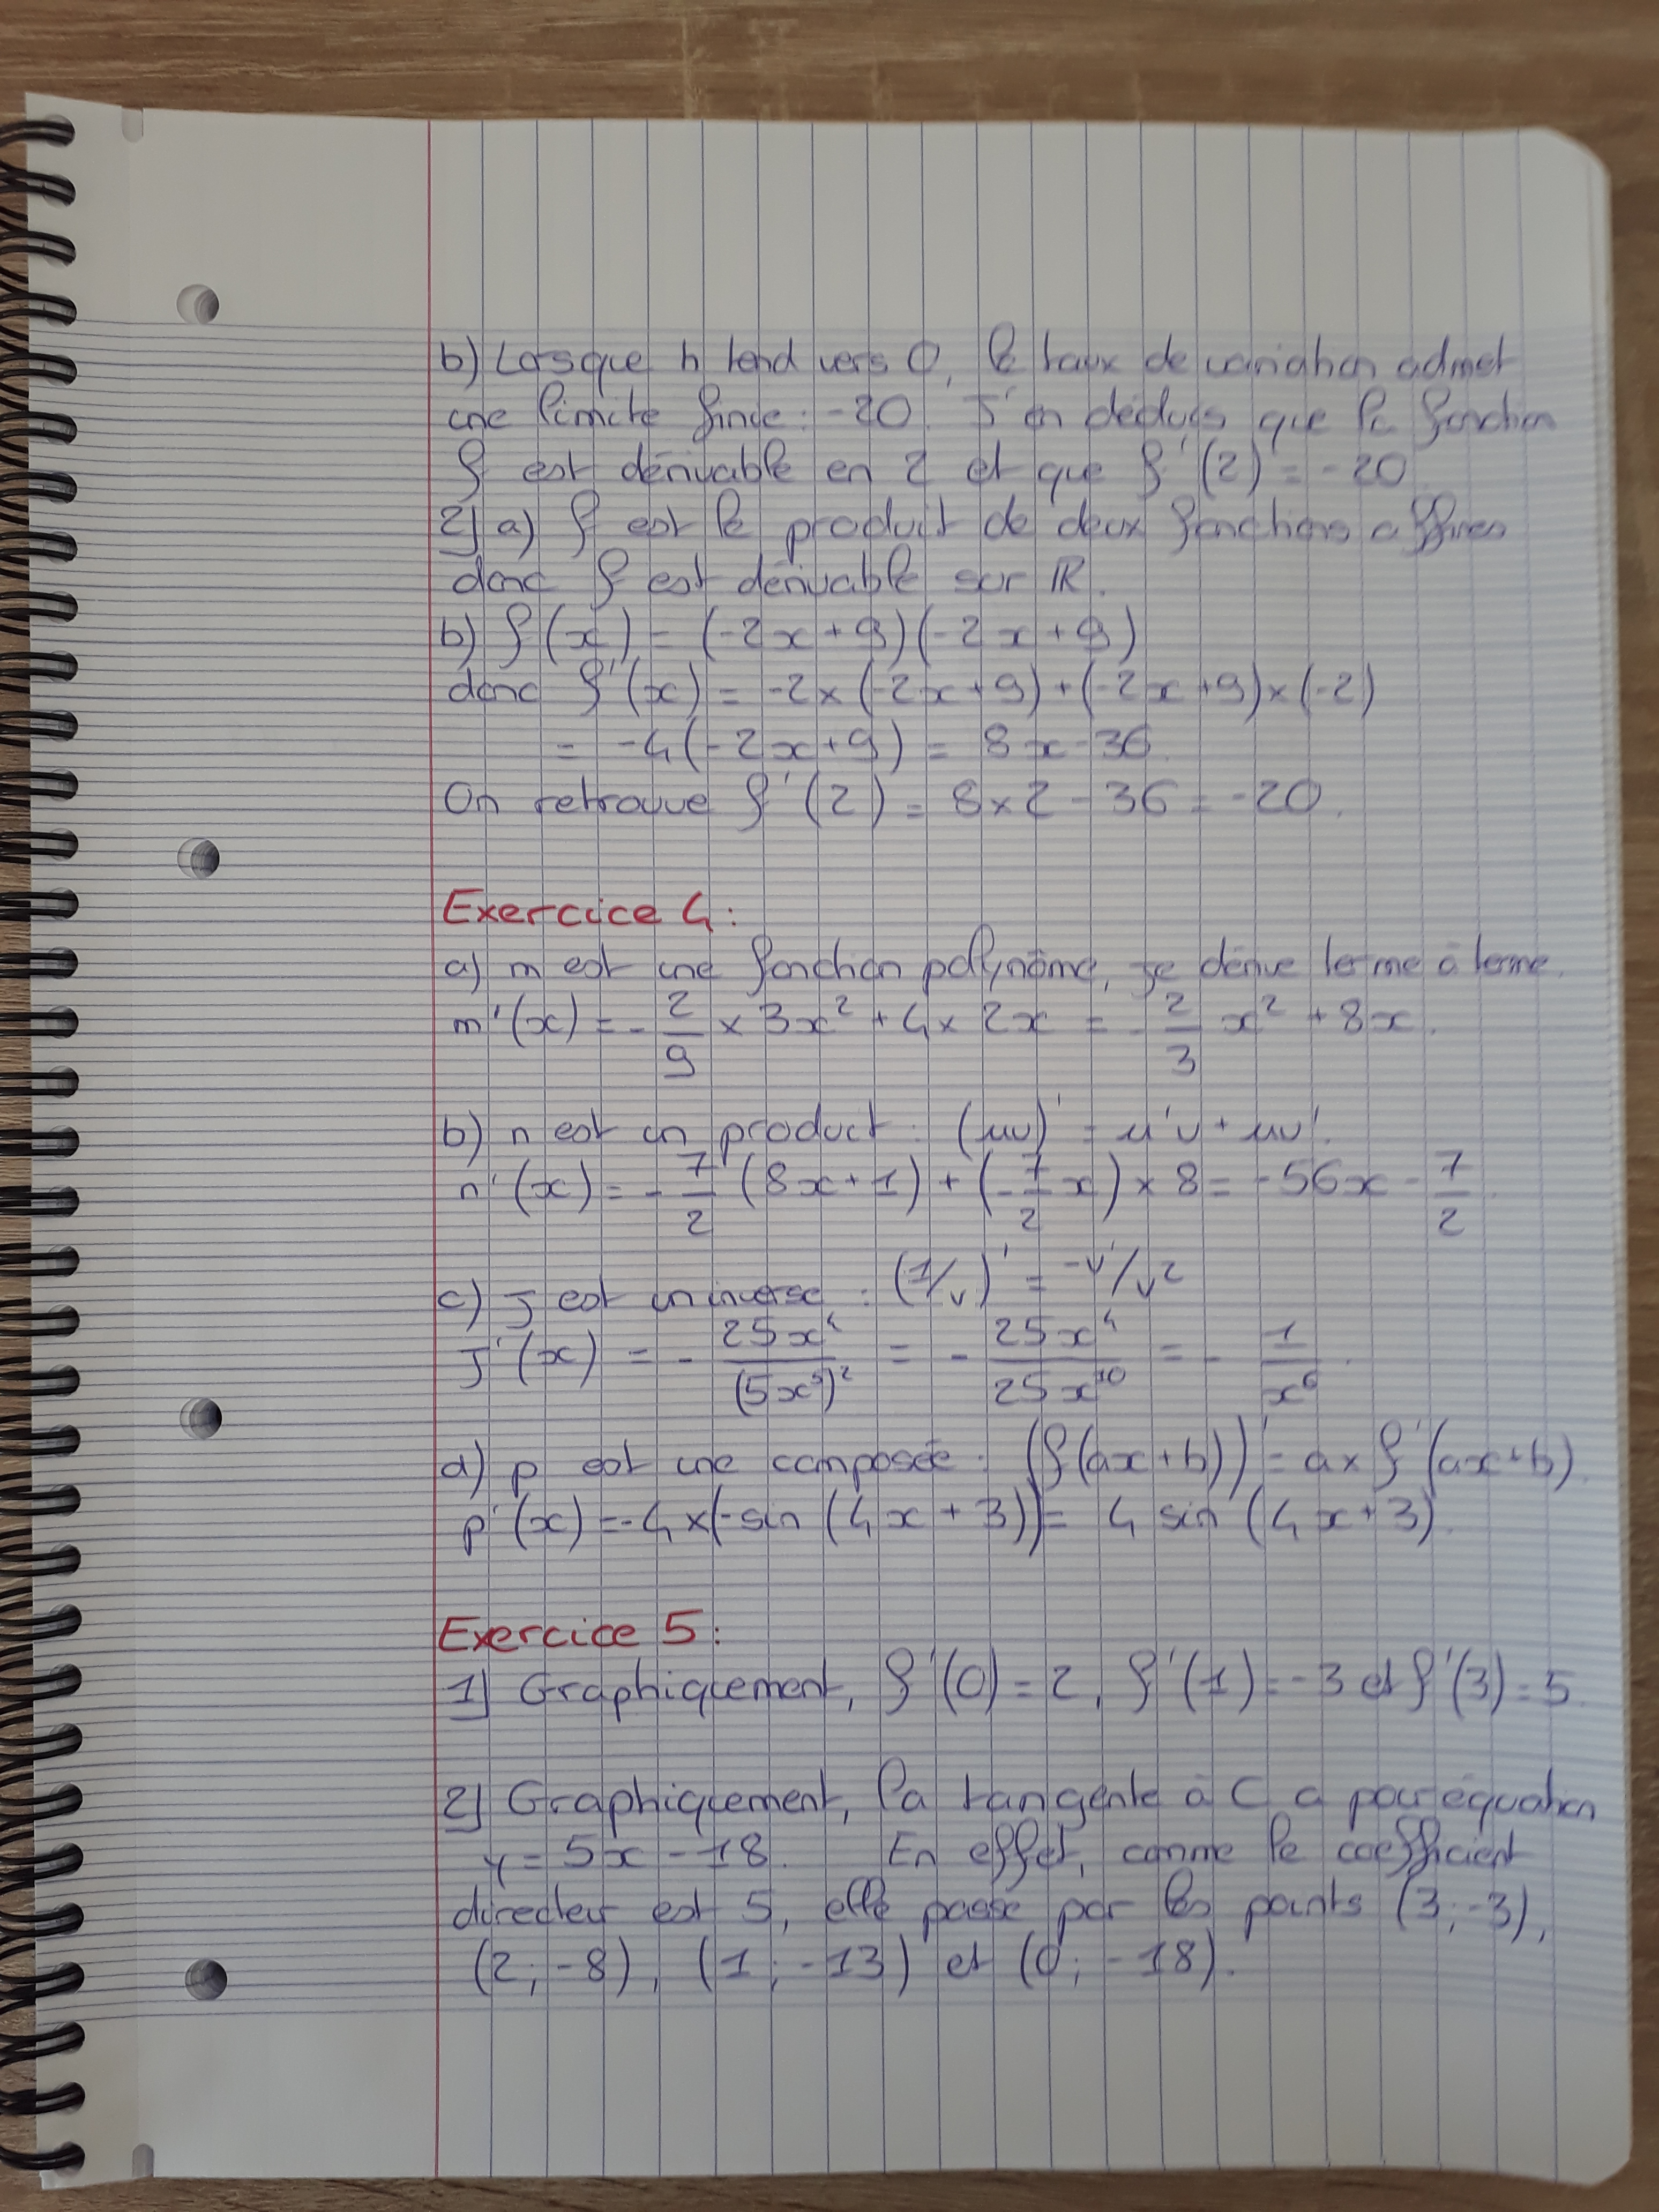 b) Lorsque h tend vers 0, le taux de variation admet
une limite finie : -20. J'en déduis que la fonction
f est dérivable en 2 et que f'(2) = -20
2) a) f est le produit de deux fonctions affines
donc f est dérivable sur ℝ.
b) f(x) = (-2x+9)(-2x+9)
donc f'(x) = -2×(-2x+9)+(-2x+9)×(-2)
= -4(-2x+9) = 8x-36.
On retrouve f'(2) = 8×2-36 = -20.
Exercice 4:
a) m est une fonction polynôme, je dérive terme à terme.
m'(x) = -2/9 × 3x² + 4×2x = -2/3 x² + 8x.
b) n est un product : (uv)' = u'v + uv'.
n'(x) = -7/2 (8x+1) + (-7/2 x) × 8 = -56x - 7/2.
c) j est un inverse : (1/v)' = -v'/v²
j'(x) = - 25x⁴/(5x⁵)² = - 25x⁴/25x¹⁰ = - 1/x⁶.
d) p est une composée : (f(ax+b))' = a×f'(ax+b).
p'(x) = -4×(-sin(4x+3)) = 4 sin(4x+3).
Exercice 5:
1) Graphiquement, f'(0) = 2, f'(1) = -3 et f'(3) = 5.
2) Graphiquement, la tangente à C a pour équation
y = 5x - 18. En effet, comme le coefficient
directeur est 5, elle passe par les points (3;-3),
(2;-8), (1;-13) et (0;-18).